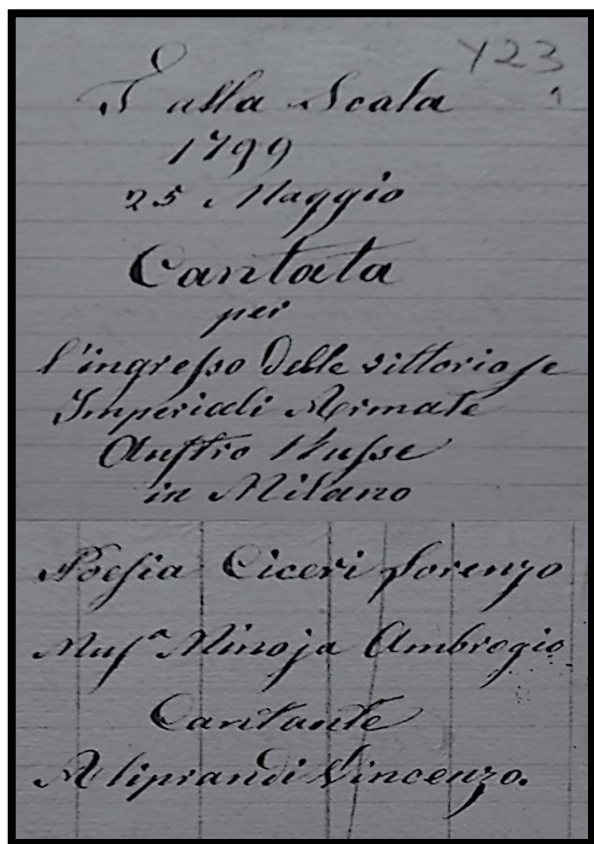 Y23
1
T alla Scala
1799
25 Maggio
Cantata
per
l'ingreſso delle vittorioſe
Imperiali Armate
Auſtro Ruſse
in Milano
Poeſia Ciceri Lorenzo
Muſª Minoja Ambrogio
Cantante
Aliprandi Vincenzo.